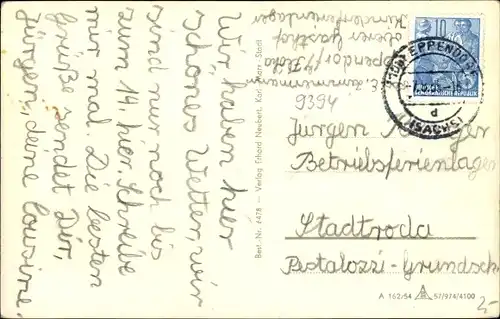 Wir haben hier
schönes Wetter, wir
sind nur noch bis
zum 14. hier. Schreibe
mir mal. Die besten
Grüße sendet Dir,
Jürgen, deine Cousine.
Zimmermann
Eppendorf
Gasthof
Kinderferienlager
9394
Best.-Nr. F478 – Verlag Erhard Neubert, Karl-Marx-Stadt
10
DEUTSCHE DEMOKRATISCHE REPUBLIK
EPPENDORF
d
(SACHS)
Jürgen
Betriebsferienlager
Stadtroda
Pestalozzi-Grundsch
A 162/54 57/974/4100
2,-